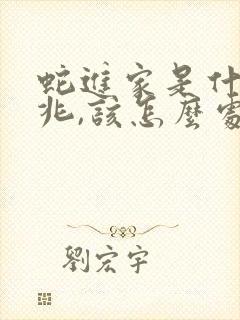 蛇進家是什
兆,該怎麼處
劉宏宇